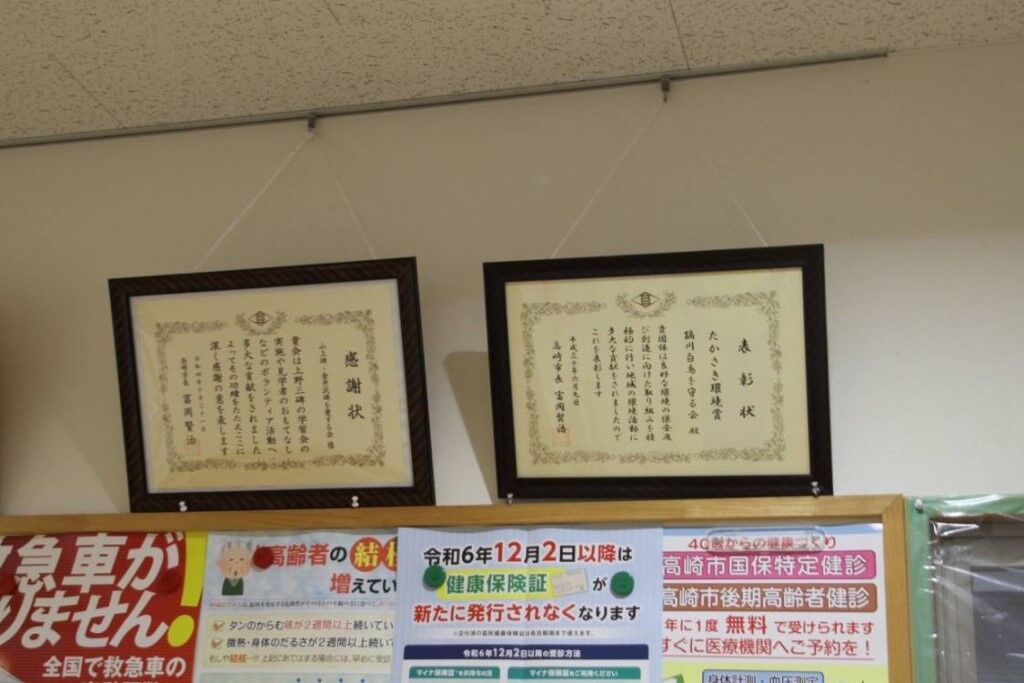 感謝状
山上碑・金井沢碑を愛する会 様
貴会は上野三碑の学習会の
実施や見学者のおもてなし
などのボランティア活動へ
多大な貢献をされました
よってその功績をたたえここに
深く感謝の意を表します
令和四年十月三十一日
高崎市長 富岡賢治
表彰状
たかさき環境賞
鏑川白鳥を守る会 殿
貴団体は良好な環境の保全及
び創造に向けた取り組みを積
極的に行い地域の環境活動に
多大な貢献をされましたので
これを表彰します
平成三十年六月九日
高崎市長 富岡賢治
救急車が
りません!
全国で救急車の
高齢者の結核
増えてい
タンのからむ咳が2週間以上続いてい
微熱・身体のだるさが2週間以上続い
令和6年12月2日以降は
健康保険証が
新たに発行されなくなります
令和6年12月2日以降の受診方法
マイナ保険証をお持ちの方
マイナ保険証をご利用ください
40歳からの健康づくり
高崎市国保特定健診
高崎市後期高齢者健診
年に1度 無料で受けられます
すぐに医療機関へご予約を!
身体計測・血圧測定